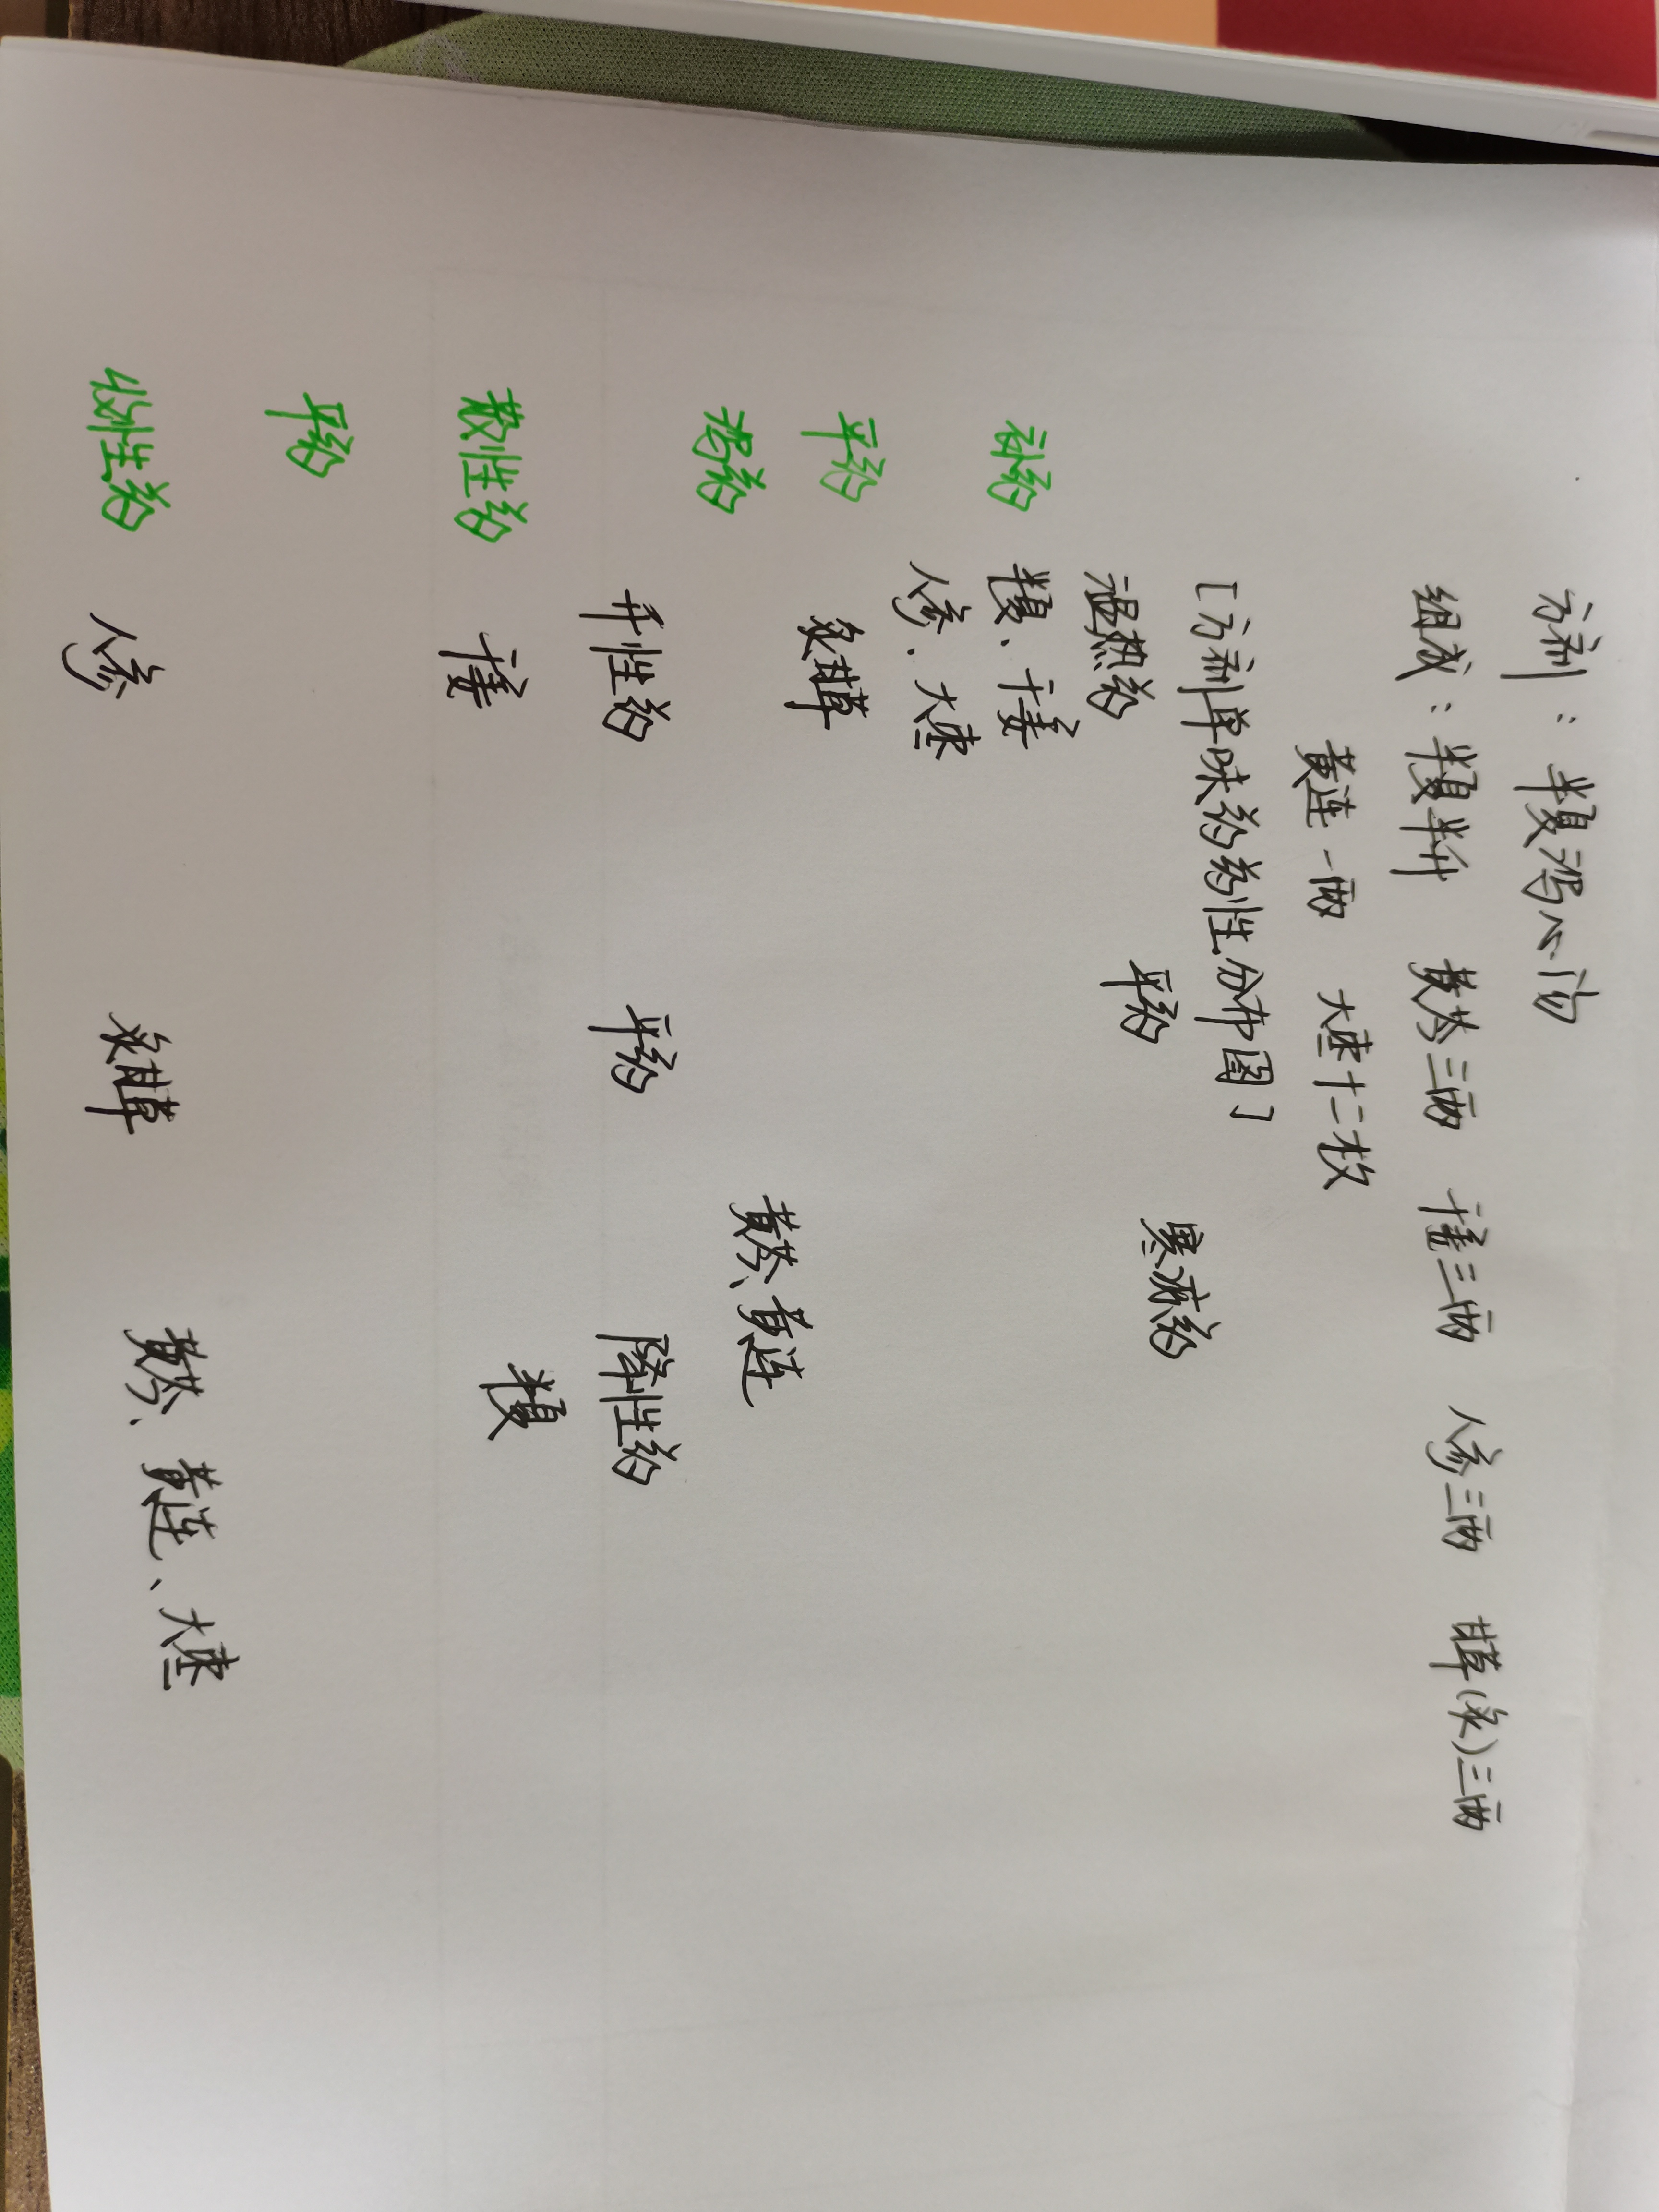 方剂：半夏泻心汤
组成：半夏半升 黄芩三两 干姜三两 人参三两 甘草(炙)三两
黄连一两 大枣十二枚
[方剂单味药药性分布图]
温热药 平药 寒凉药
补药 半夏、干姜
人参、大枣
平药 炙甘草
泻药 黄芩、黄连
升性药 平药 降性药
散性药 干姜 半夏
平药
收性药 人参 炙甘草 黄芩、黄连、大枣